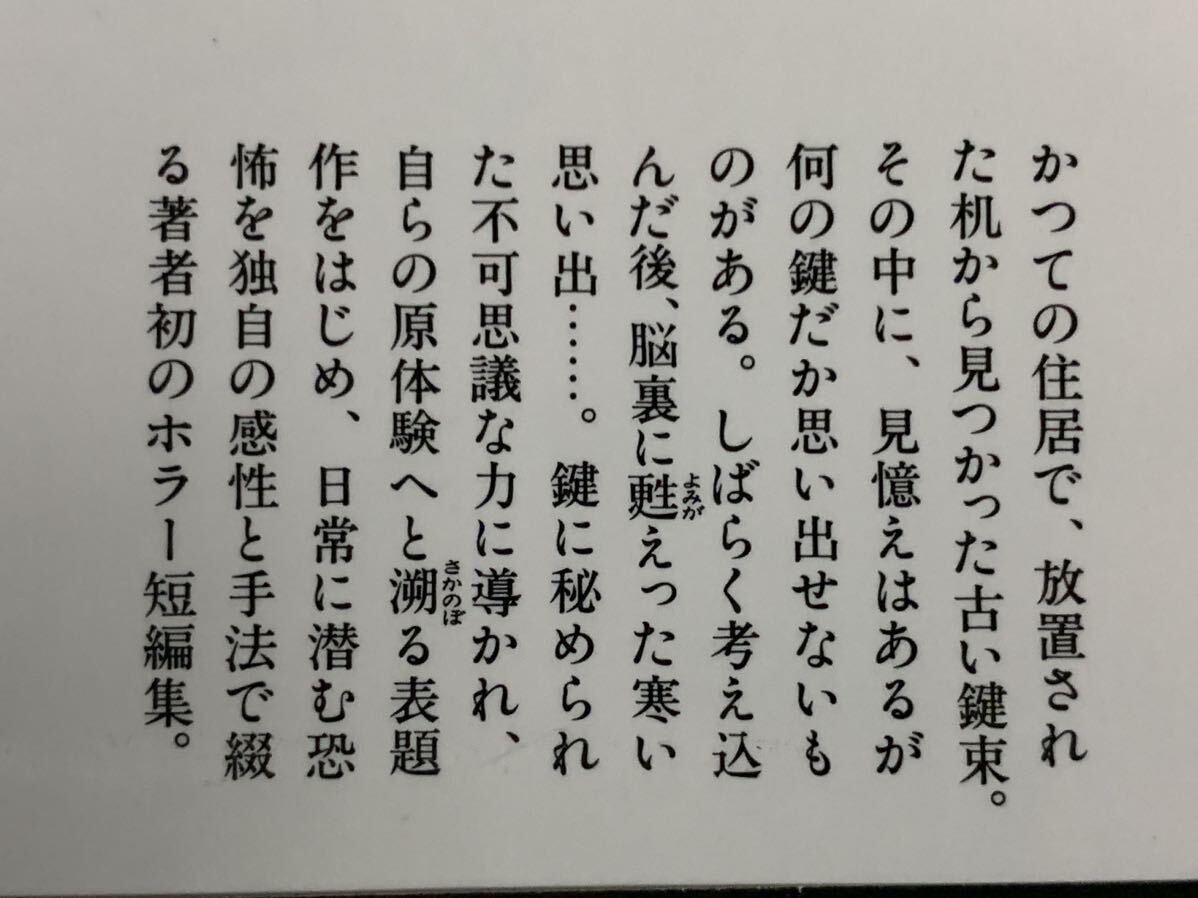 かつての住居で、放置され
た机から見つかった古い鍵束。
その中に、見憶えはあるが
何の鍵だか思い出せないも
のがある。しばらく考え込
んだ後、脳裏に甦えった寒い
思い出……。鍵に秘められ
た不可思議な力に導かれ、
自らの原体験へと溯る表題
作をはじめ、日常に潜む恐
怖を独自の感性と手法で綴
る著者初のホラー短編集。
よみが
さかのぼ